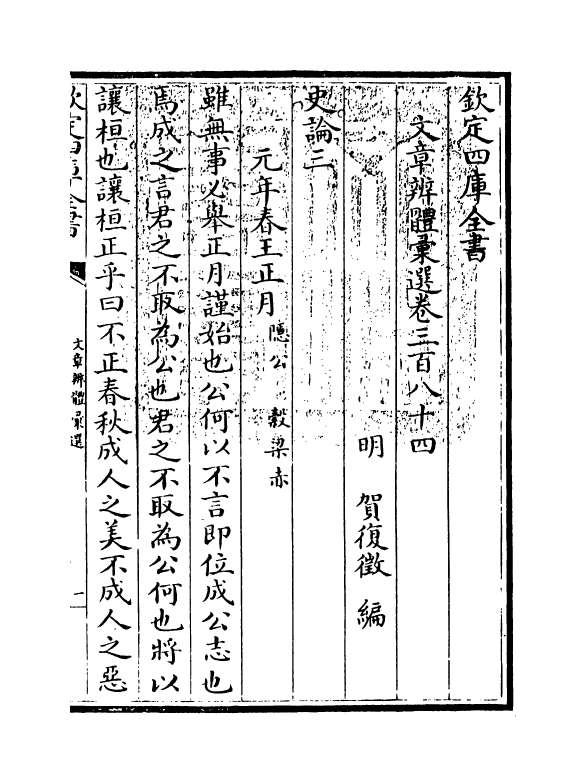 欽定四庫全書
文章辨體彚選卷三百八十四
明 賀復徵 編
史論三
元年春王正月 隱公 穀梁赤
雖無事必舉正月謹始也公何以不言即位成公志也
焉成之言君之不取為公也君之不取為公何也將以
讓桓也讓桓正乎曰不正春秋成人之美不成人之惡
欽定四庫全書
文章辨體彚選
一